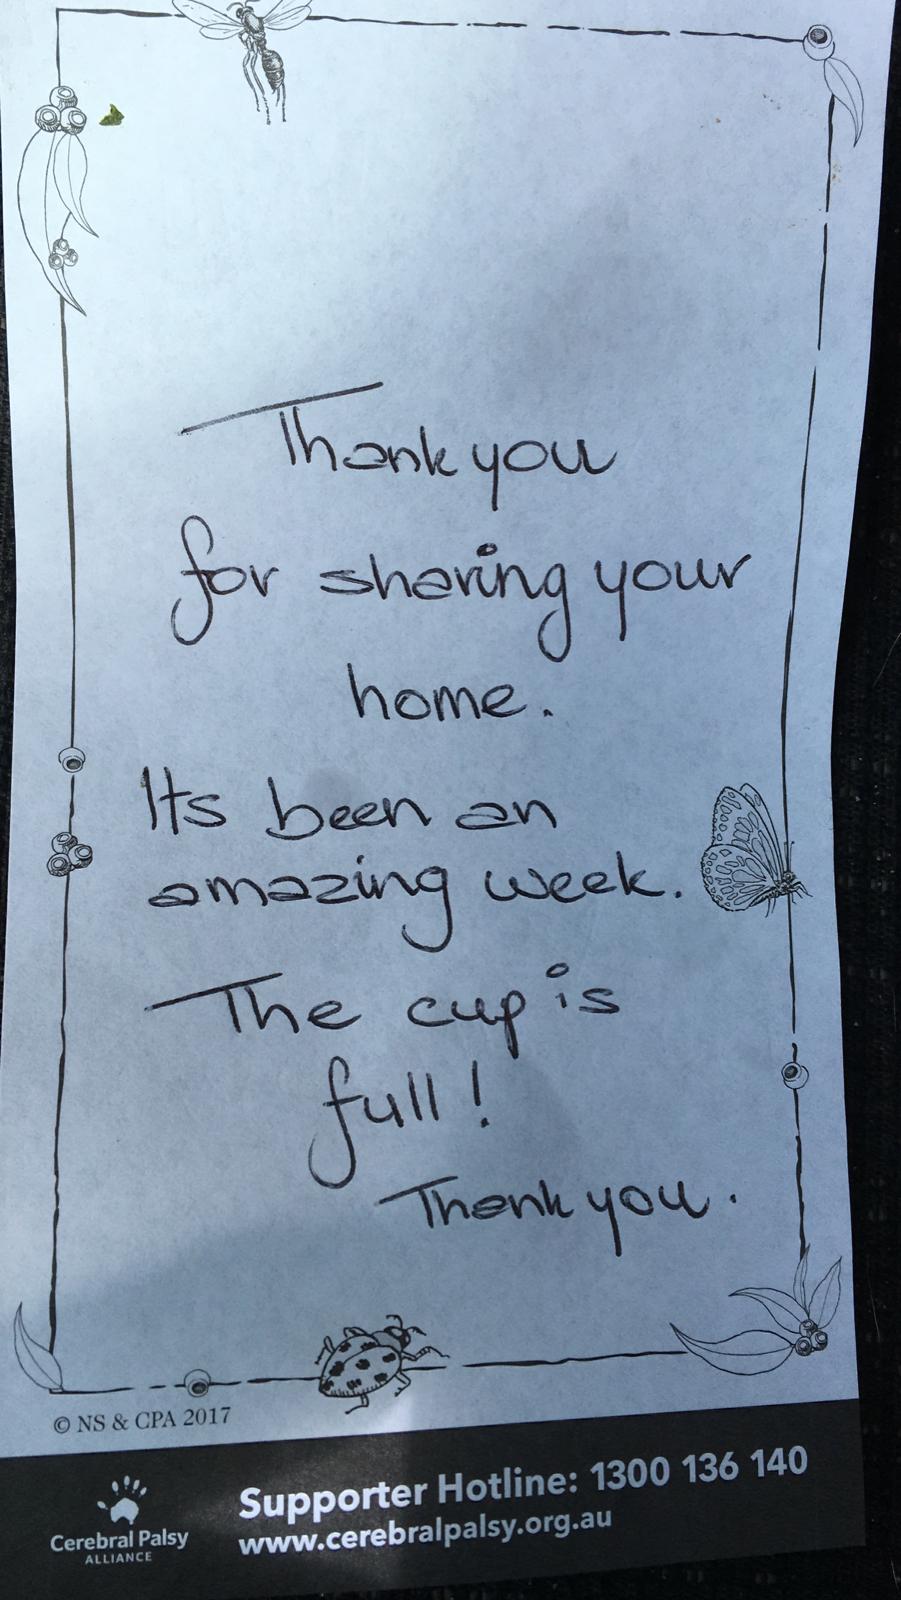 Thank you
for sharing your
home.
Its been an
amazing week.
The cup is
full!
Thank you.
© NS & CPA 2017
Cerebral Palsy
ALLIANCE
Supporter Hotline: 1300 136 140
www.cerebralpalsy.org.au